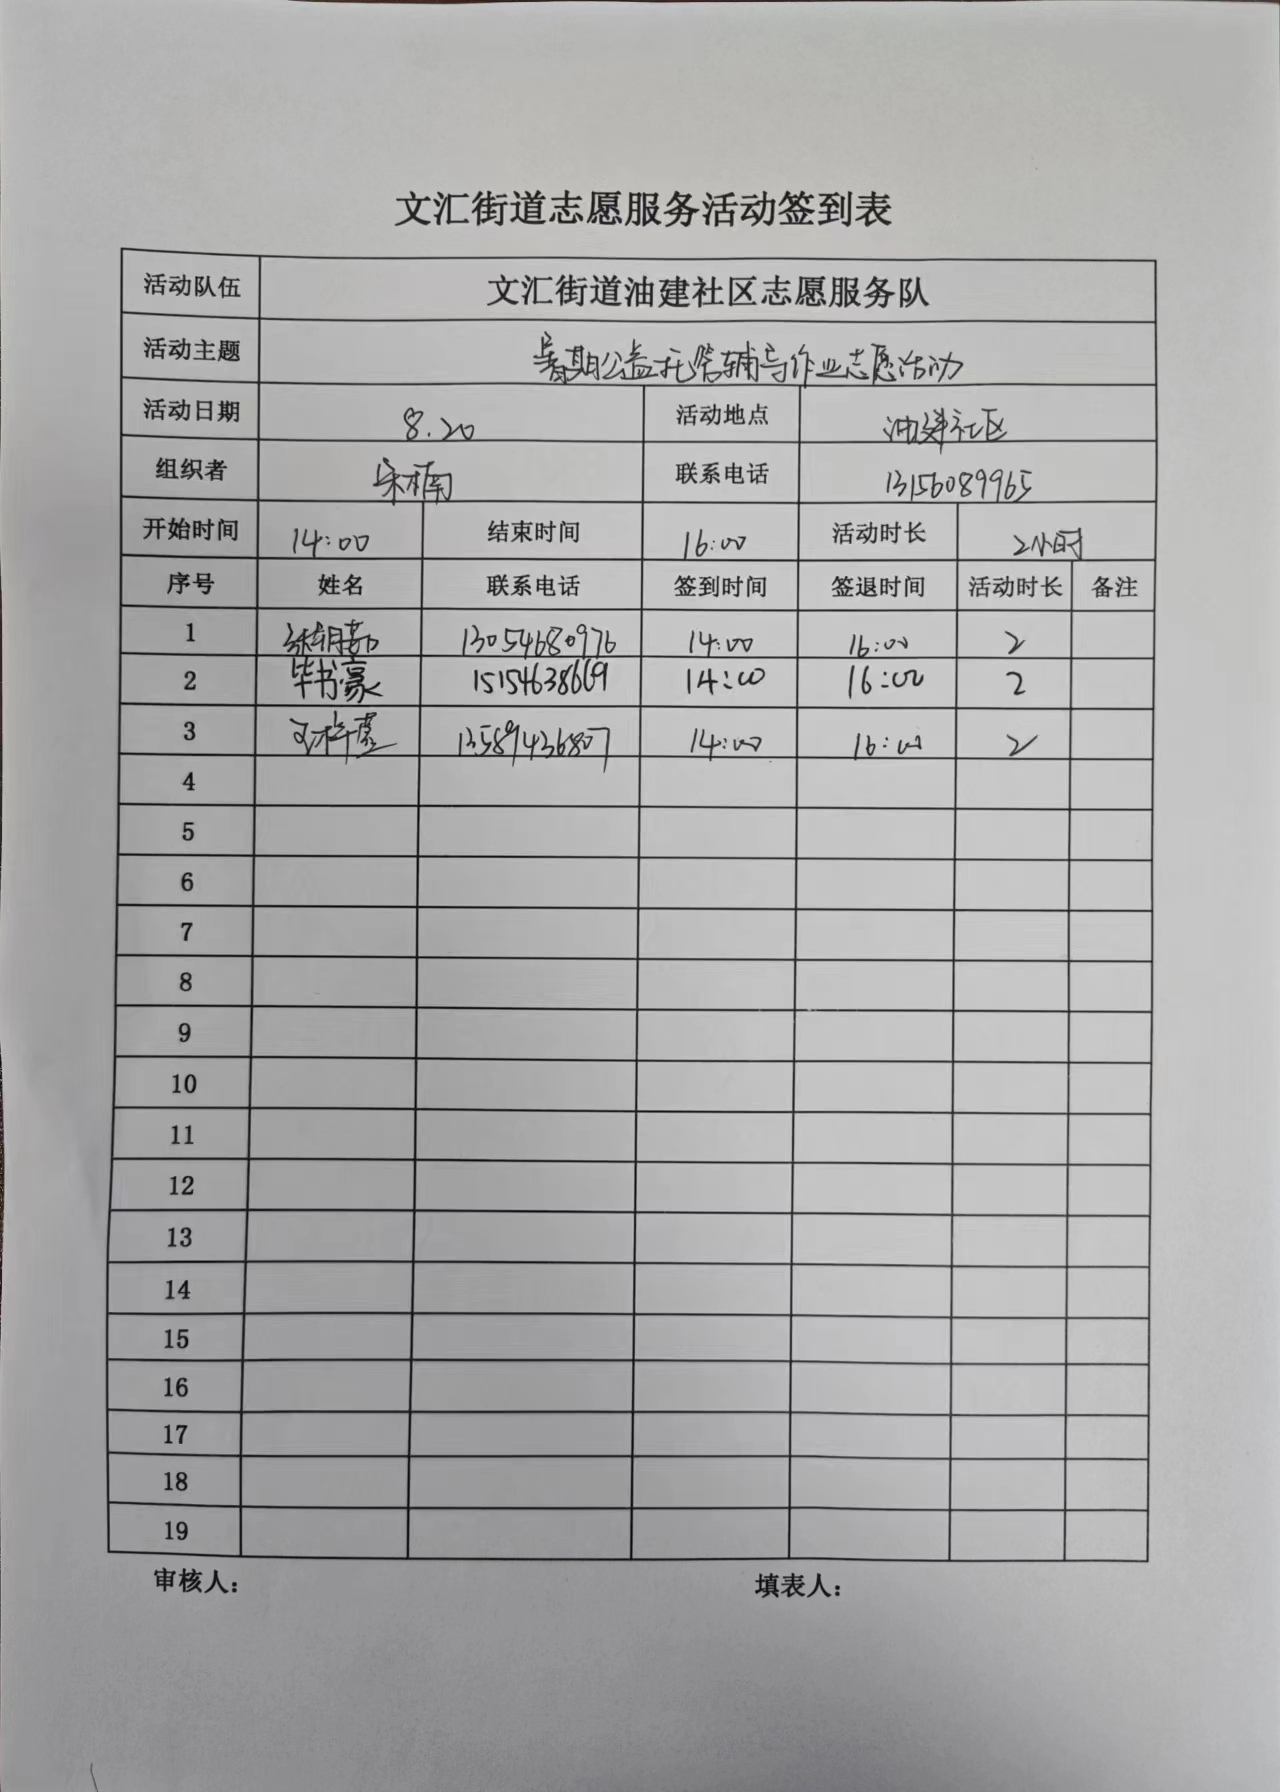 文汇街道志愿服务活动签到表
活动队伍 文汇街道油建社区志愿服务队
活动主题 暑期公益托管辅导作业志愿活动
活动日期 8.20 活动地点 油建社区
组织者 宋楠 联系电话 13156089965
开始时间 14:00 结束时间 16:00 活动时长 2小时
序号 姓名 联系电话 签到时间 签退时间 活动时长 备注
1 13054680976 14:00 16:00 2
2 毕书豪 15154638669 14:00 16:00 2
3 13589436807 14:00 16:00 2
4
5
6
7
8
9
10
11
12
13
14
15
16
17
18
19
审核人： 填表人：